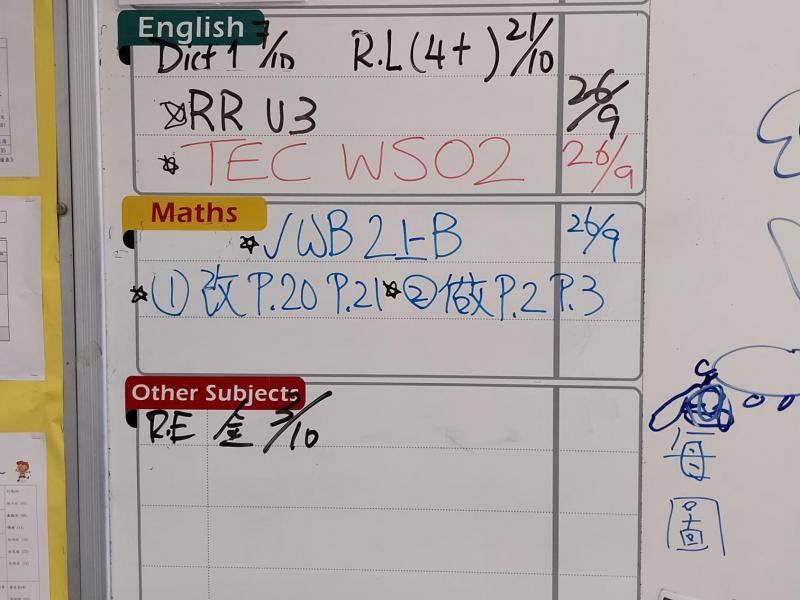 English
Dict 1 7/10 R.L (4+) 21/10
☆RR U3 26/9
☆ TEC WS02 26/9
Maths
☆ √WB 2上B 26/9
☆① 改 P.20 P.21 ☆② 做 P.2 P.3
Other Subjects
R.E 金 3/10
每
圖